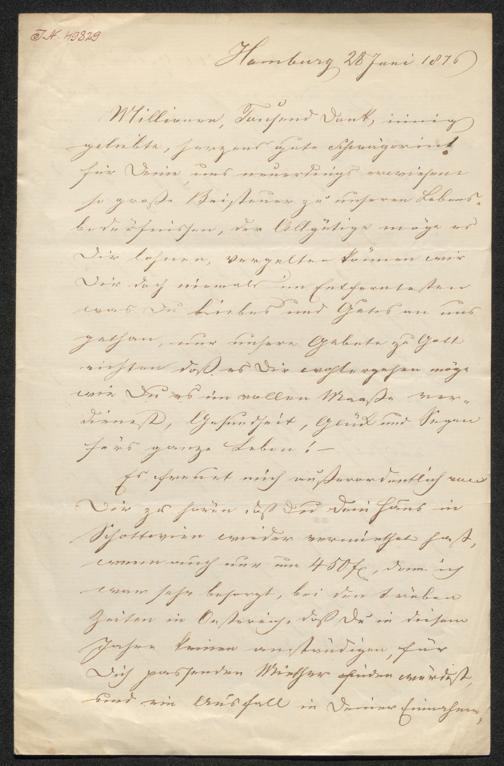 I.N. 49829
Hamburg 28 Juni 1876
Millionen, Tausend Dank, innig
geliebte, herzens gute Schwägerin!
für Deine uns neuerdings erwiesene
so große Beisteuer zu unseren Lebens-
bedürfnissen, der Allgütige möge es
Dir lohnen, vergelten können wir
Dir doch niemals im Entferntesten
was Du Liebes und Gutes an uns
gethan, nur unsere Gebete zu Gott
richten daß es Dir wohlergehen möge
wie Du es im vollen Maaße ver-
dienest, Gesundheit, Glück und Segen
für's ganze Leben! –
Es freuet mich außerordentlich von
Dir zu hören daß Du Dein Haus in
Schottwien wieder vermiethet hast,
wenn auch nur um 450 fl, denn ich
war sehr besorgt, bei den trüben
Zeiten in Oesterreich, daß Du in diesem
Jahre keinen anständigen, für
Dich passenden Miether finden würdest,
und ein Ausfall in Deiner Einnahme,